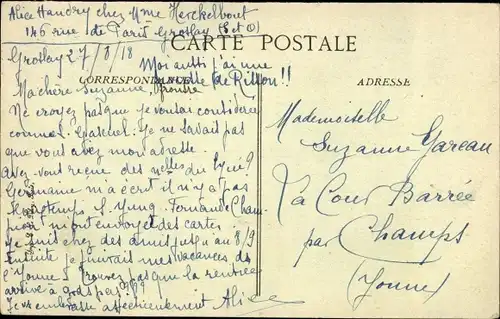 Alice Haudry chez Mme Herckelbout
146 rue de Paris Groslay (S et O)
CARTE POSTALE
Groslay 27/8/18
Moi aussi j'ai une
CORRESPONDANCE
ADRESSE
de Rillon!!
Ma chère Suzanne, frousse
Ne croyez pas que je voulai
comme Je ne savais pas
que vous avez mon adresse.
Avez-vous reçu des nelles du Lycée?
Germaine m'a écrit il n'y a pas
longtemps. S. Yung. Fernande Cham-
pion m'ont envoyé des cartes
Je suis chez des amis jusqu'au 8/9
Ensuite je finirai mes vacances ds
l'Yonne. Trouvez pas que la rentrée
arrive à gds pas???
Je vs embrasse affectueusement Alice
Mademoiselle
Suzanne Gareau
La Cour Barrée
par Champs
(Yonne)